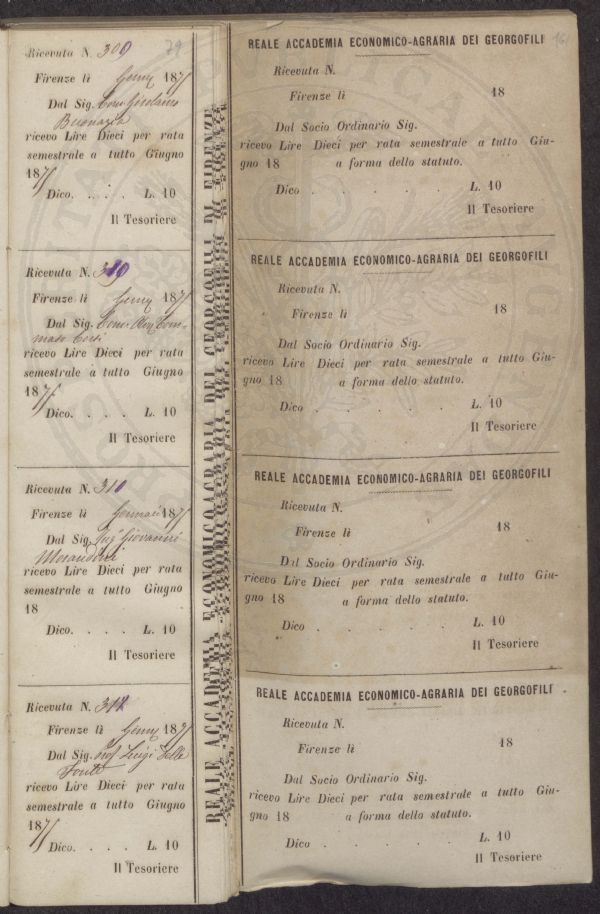 79
Ricevuta N. 309
Firenze lì Genn 187
Dal Sig. Girolamo
Buonazia
ricevo Lire Dieci per rata
semestrale a tutto Giugno
187
Dico. . . . . L. 10
Il Tesoriere
Ricevuta N.
Firenze lì Genn 187
Dal Sig.
Corsi
ricevo Lire Dieci per rata
semestrale a tutto Giugno
187
Dico. . . . . L. 10
Il Tesoriere
Ricevuta N. 310
Firenze lì Gennaio 187
Dal Sig. Giovanni
Morandini
ricevo Lire Dieci per rata
semestrale a tutto Giugno
18
Dico. . . . . L. 10
Il Tesoriere
Ricevuta N. 312
Firenze lì Genn 187
Dal Sig. Prof Luigi Della
Fonte
ricevo Lire Dieci per rata
semestrale a tutto Giugno
187
Dico. . . . . L. 10
Il Tesoriere
REALE ACCADEMIA ECONOMICO-AGRARIA DEI GEORGOFILI DI FIRENZE
REALE ACCADEMIA ECONOMICO-AGRARIA DEI GEORGOFILI
Ricevuta N.
Firenze lì 18
Dal Socio Ordinario Sig.
ricevo Lire Dieci per rata semestrale a tutto Giu-
gno 18 a forma dello statuto.
Dico . . . . . L. 10
Il Tesoriere
REALE ACCADEMIA ECONOMICO-AGRARIA DEI GEORGOFILI
Ricevuta N.
Firenze lì 18
Dal Socio Ordinario Sig.
ricevo Lire Dieci per rata semestrale a tutto Giu-
gno 18 a forma dello statuto.
Dico . . . . . L. 10
Il Tesoriere
REALE ACCADEMIA ECONOMICO-AGRARIA DEI GEORGOFILI
Ricevuta N.
Firenze lì 18
Dal Socio Ordinario Sig.
ricevo Lire Dieci per rata semestrale a tutto Giu-
gno 18 a forma dello statuto.
Dico . . . . . L. 10
Il Tesoriere
REALE ACCADEMIA ECONOMICO-AGRARIA DEI GEORGOFILI
Ricevuta N.
Firenze lì 18
Dal Socio Ordinario Sig.
ricevo Lire Dieci per rata semestrale a tutto Giu-
gno 18 a forma dello statuto.
Dico . . . . . L. 10
Il Tesoriere